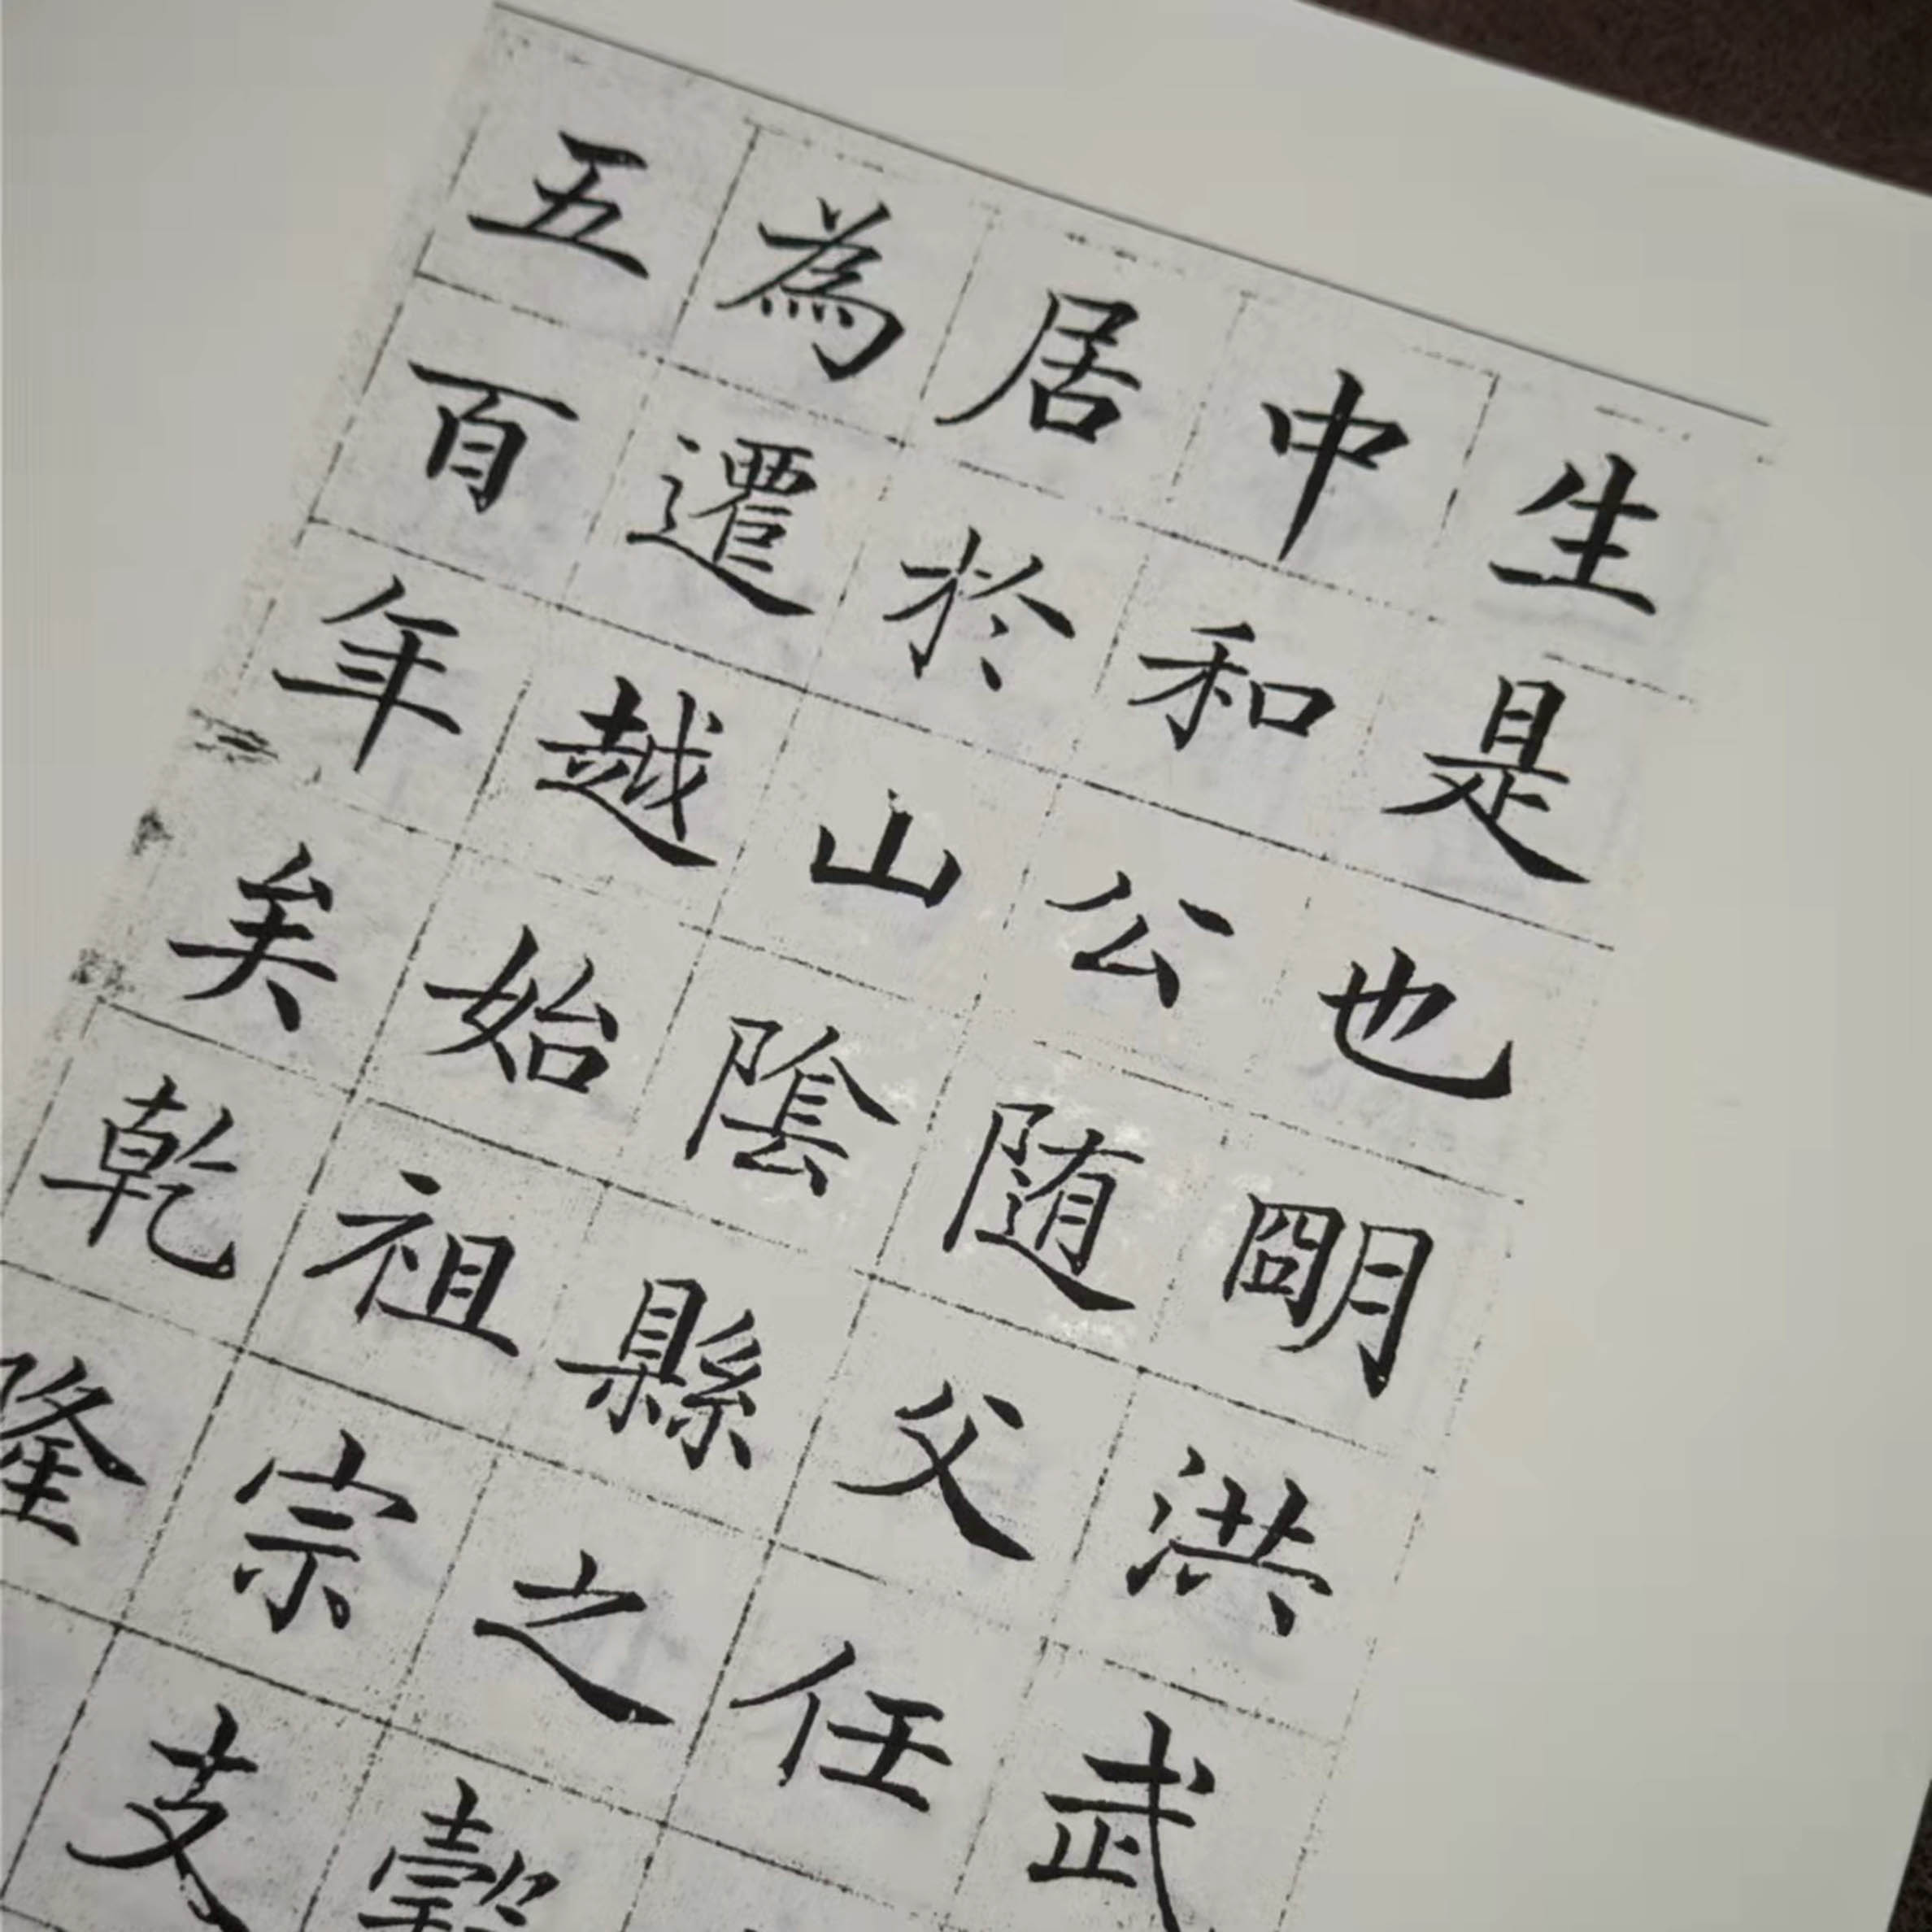 生是也朙洪武
中和公随父任
居於山陰縣之
為遷越始祖宗支
五百年矣乾隆